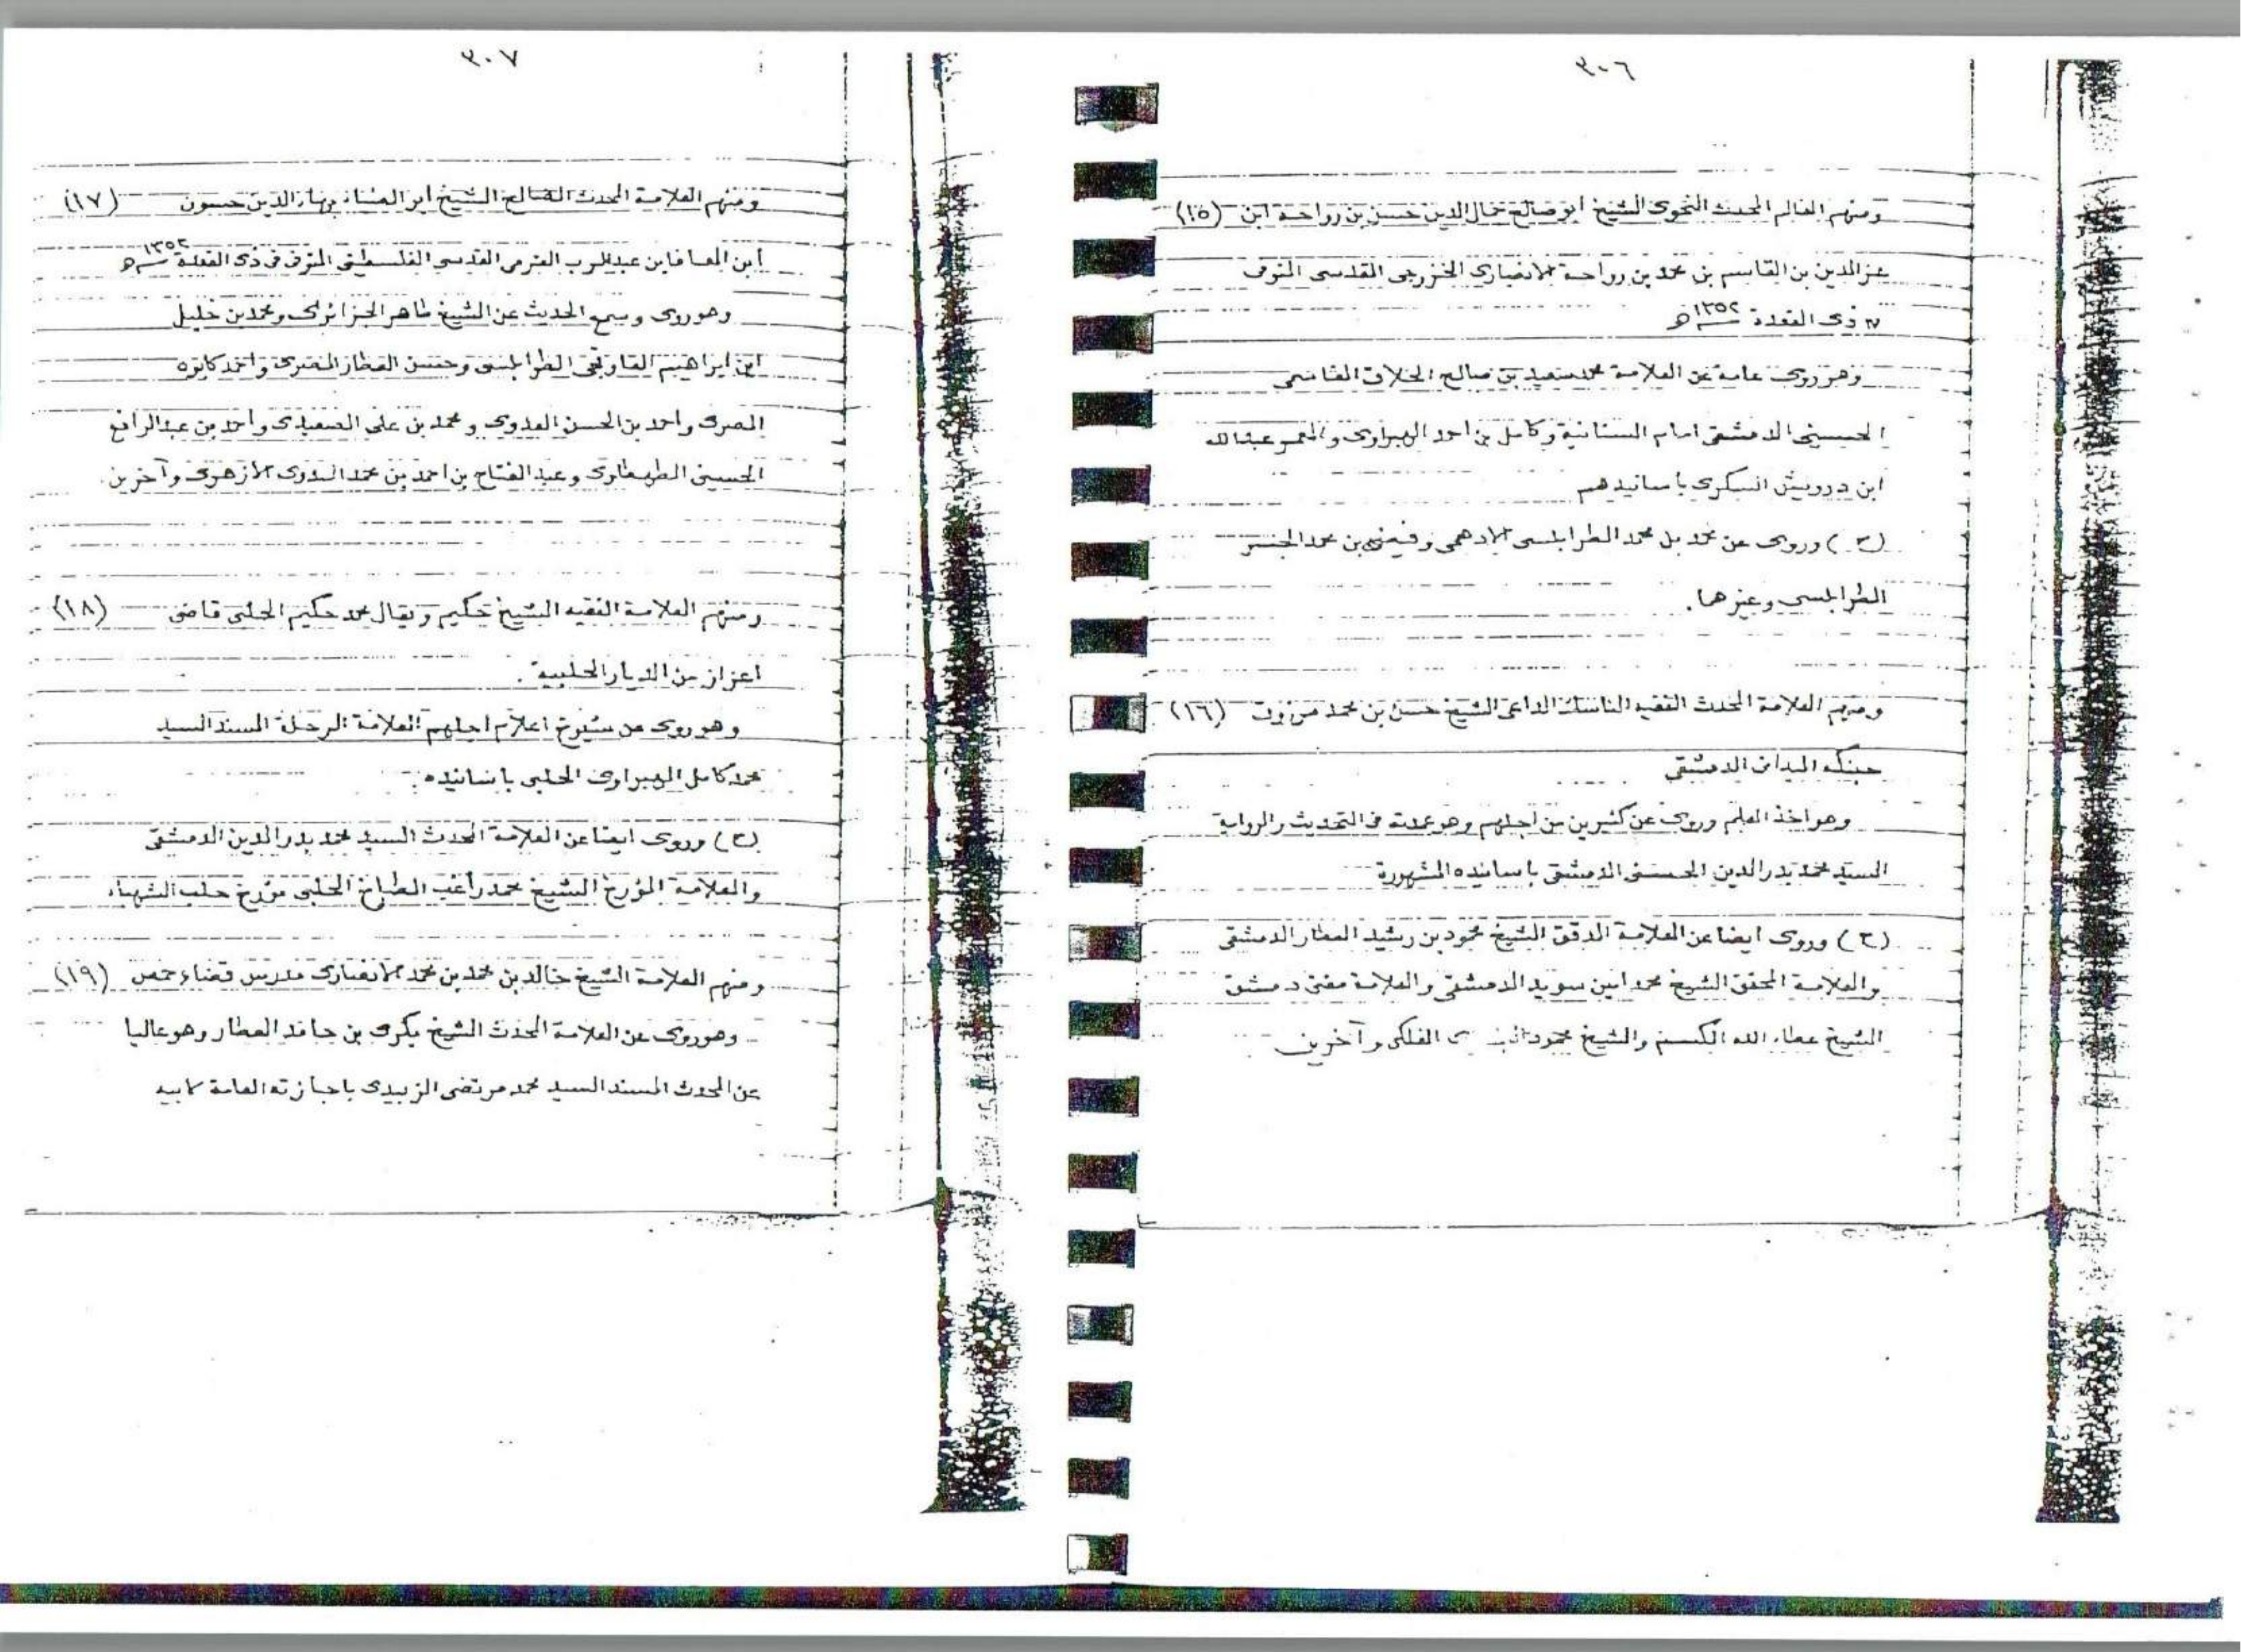 ٣٠٦
ومنهم العالم المحدث النحوى الشيخ ابو صالح جمال الدين حسن بن رواحة ابن (١٥)
عز الدين بن القاسم بن محمد بن رواحة الانصارى الخزرجى القدسى المتوفى
ذى القعدة ١٣٥٢ـه
وهو روى عامة عن العلامة محمد سعيد بن صالح الحلاق القاسمى
الحسينى الدمشقى امام السنانية وكامل بن احمد الهبراوى والمعمر عبد الله
ابن درويش السكرى باسانيدهم
(ح) وروى عن محمد بن محمد الطرابلسى الادهمى وفيضى بن محمد الجسر
الطرابلسى وغيرهما.
ومنهم العلامة المحدث الفقيه الناسك الداعى الشيخ حسن بن محمد مرزوق (١٦)
حبنكه الميدانى الدمشقى
وهو اخذ العلم وروى عن كثيرين من اجلهم وهو عمدته فى التحديث والرواية
السيد محمد بدر الدين الحسنى الدمشقى باسانيده المشهورة
(ح) وروى ايضا عن العلامة المدقق الشيخ محمود بن رشيد العطار الدمشقى
والعلامة المحقق الشيخ محمد امين سويد الدمشقى والعلامة مفتى دمشق
الشيخ عطاء الله الكسم والشيخ محمود الفلكى وآخرين
٣٠٧
ومنهم العلامة المحدث الصالح الشيخ ابو بهاء الدين حسون (١٧)
ابن المعافا بن عبد الرب القدسى الفلسطينى المتوفى فى ذى القعدة ١٣٥٢ـه
وهو روى وسمع الحديث عن الشيخ طاهر الجزائرى ومحمد بن خليل
ابن ابراهيم القاوقجى الطرابلسى وحسن العطار المصرى واحمد كابوه
المصرى واحمد بن الحسن العدوى ومحمد بن على الصعيدى واحمد بن عبد الرافع
الحسينى الطهطاوى وعبد الفتاح بن احمد بن محمد البدوى الازهرى وآخرين.
ومنهم العلامة الفقيه الشيخ حكيم ويقال محمد حكيم الحلبى قاضى (١٨)
اعزاز من الديار الحلبية.
وهو روى عن شيوخ اعلام اجلهم العلامة الرحلة المسند السيد
محمد كامل الهبراوى الحلبى باسانيده.
(ح) وروى ايضا عن العلامة المحدث السيد محمد بدر الدين الدمشقى
والعلامة المؤرخ الشيخ محمد راغب الطباخ الحلبى مؤرخ حلب الشهباء
ومنهم العلامة الشيخ خالد بن محمد بن محمد الانصارى مدرس قضاء حمص (١٩)
وهو روى عن العلامة المحدث الشيخ بكرى بن حامد العطار وهو عاليا
عن المحدث المسند السيد محمد مرتضى الزبيدى باجازته العامة لابيه